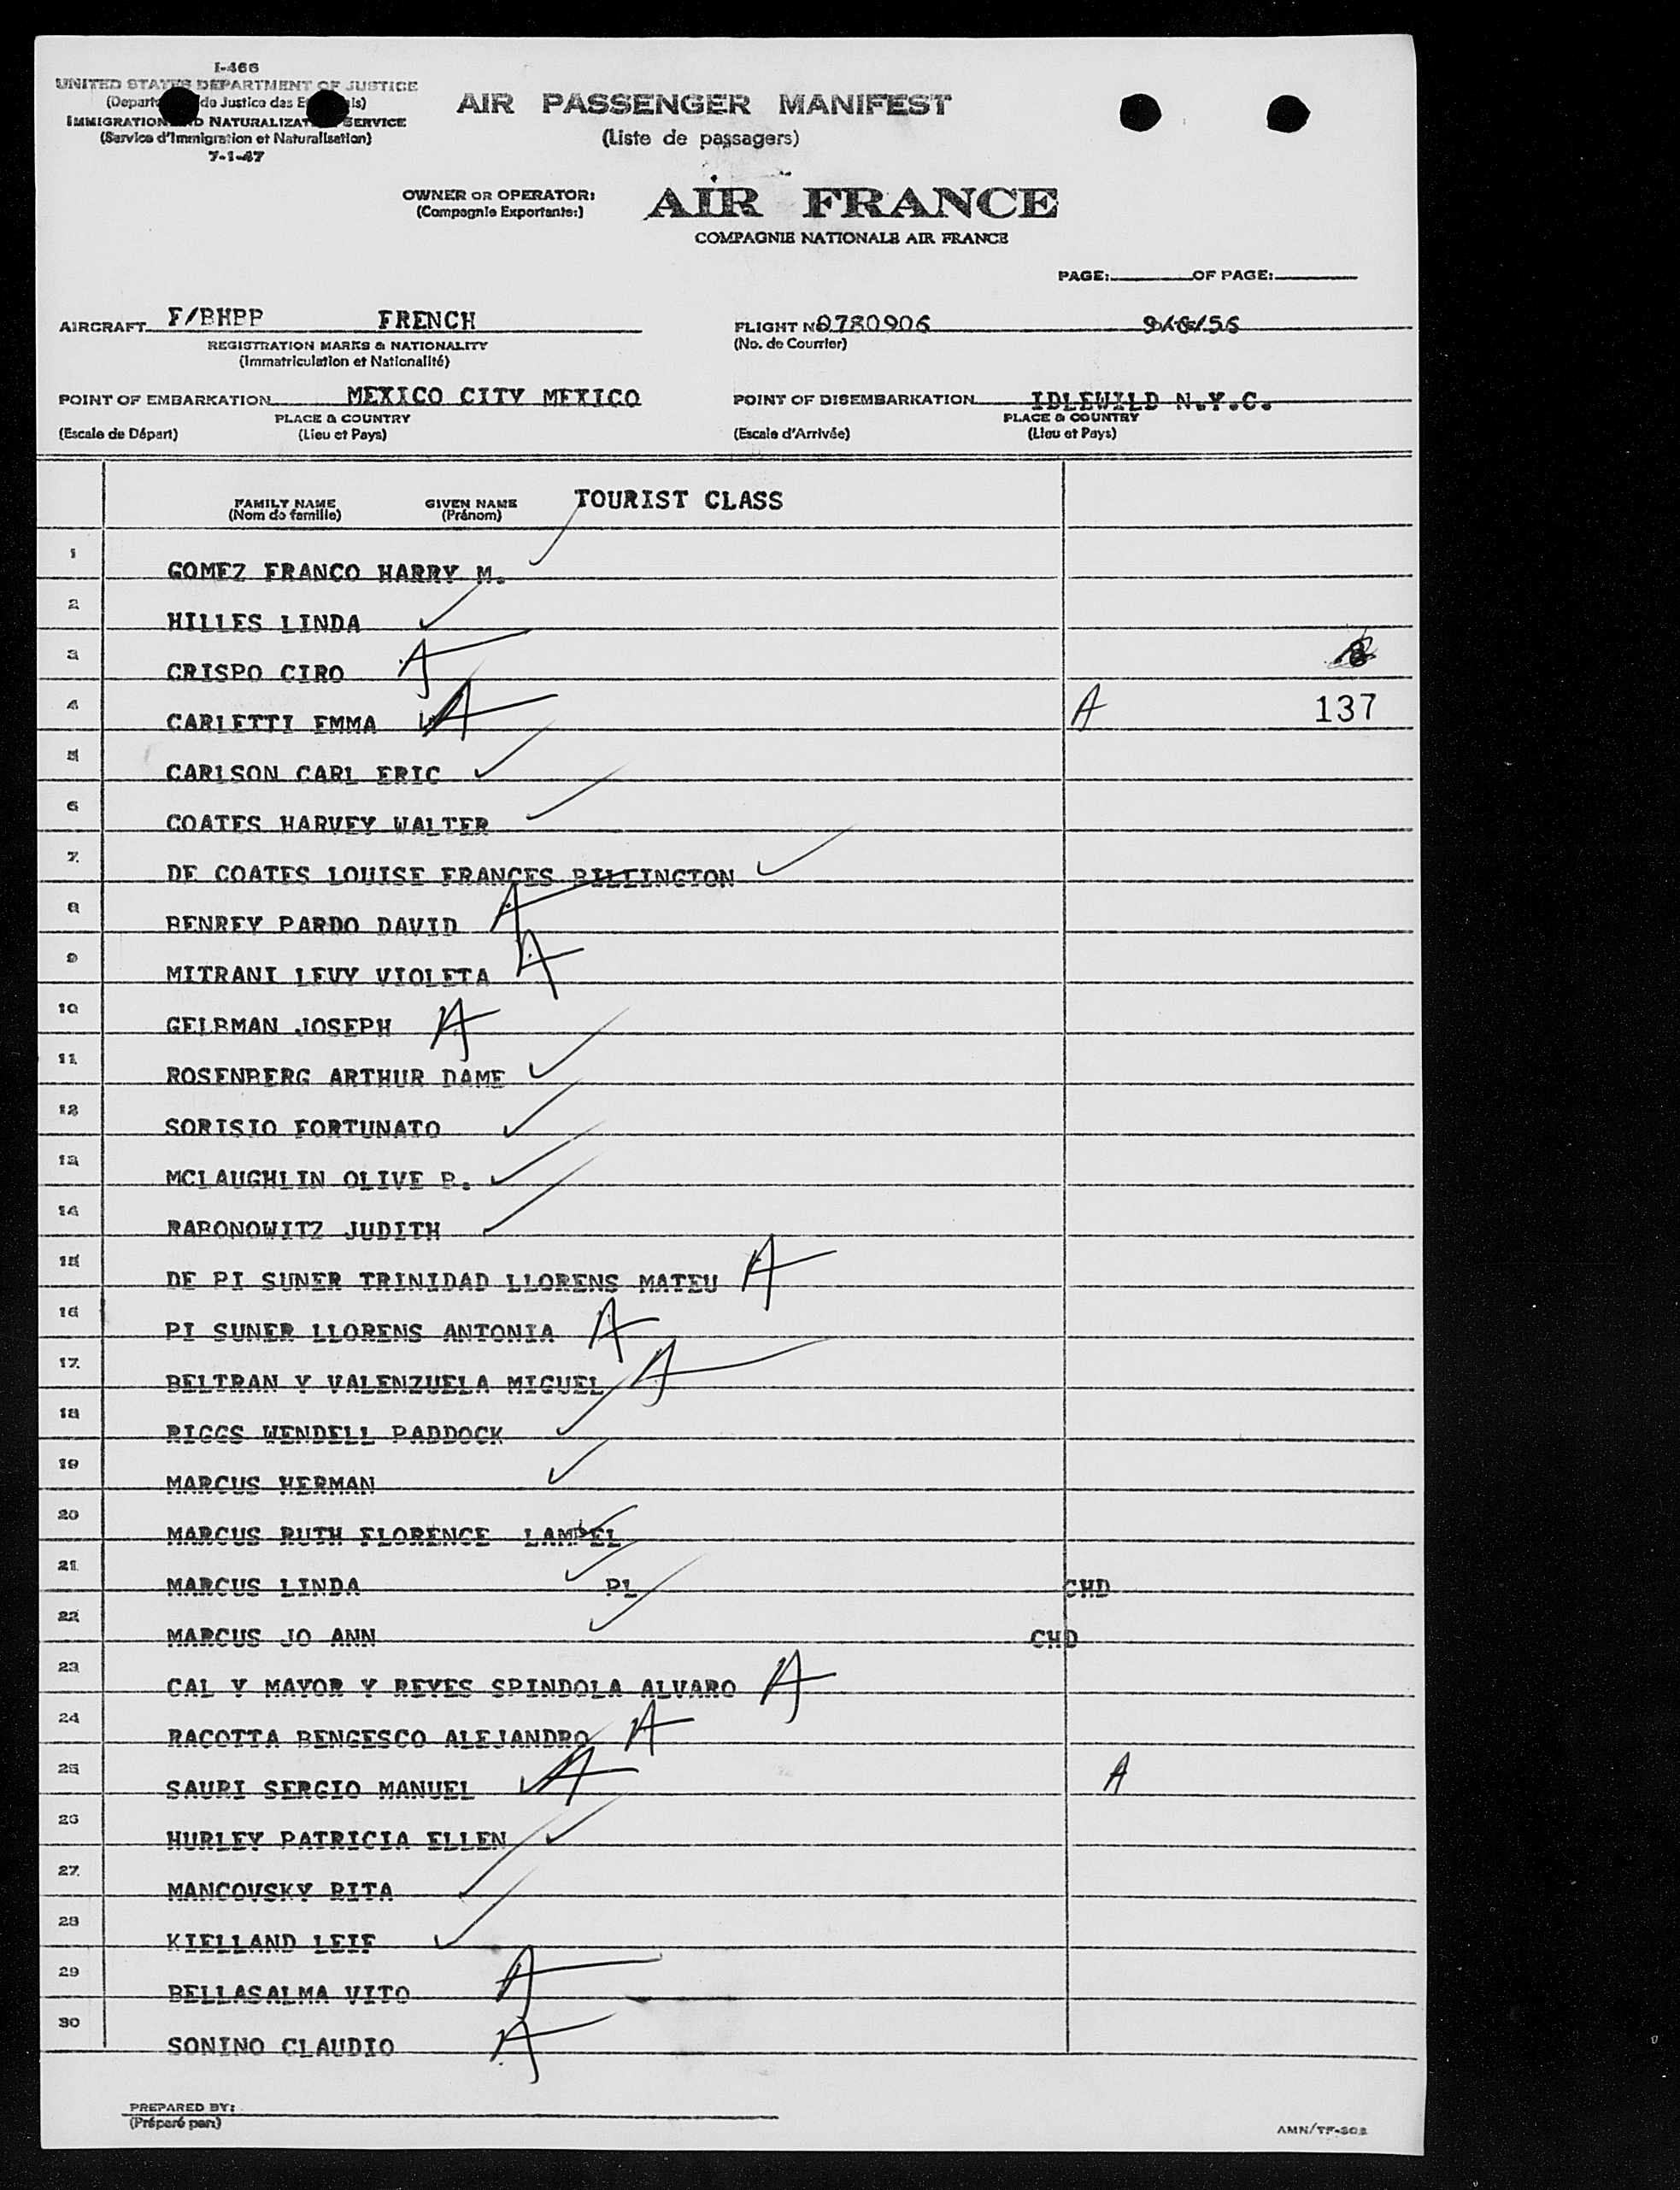 I-466
UNITED STATES DEPARTMENT OF JUSTICE
de Justice des
IMMIGRATION AND NATURALIZATION SERVICE
(Service d'Immigration et Naturalisation)
7-1-47
AIR PASSENGER MANIFEST
(Liste de passagers)
OWNER OR OPERATOR: AIR FRANCE
(Compagnie Exportante:)
COMPAGNIE NATIONALE AIR FRANCE
PAGE: OF PAGE:
AIRCRAFT F/BHPP FRENCH FLIGHT No 0780906
REGISTRATION MARKS & NATIONALITY (No. de Courrier)
(Immatriculation et Nationalité)
POINT OF EMBARKATION MEXICO CITY MEXICO POINT OF DISEMBARKATION IDLEWILD N.Y.C.
PLACE & COUNTRY PLACE & COUNTRY
(Escale de Départ) (Lieu et Pays) (Escale d'Arrivée) (Lieu et Pays)
FAMILY NAME GIVEN NAME TOURIST CLASS
(Nom de famille) (Prénom)
1 GOMEZ FRANCO HARRY M.
2 HILLES LINDA
3 CRISPO CIRO A
4 CARLETTI EMMA A A 137
5 CARLSON CARL ERIC
6 COATES HARVEY WALTER
7 DE COATES LOUISE FRANCES BILLINGTON
8 BENREY PARDO DAVID A
9 MITRANI LEVY VIOLETA A
10 GELBMAN JOSEPH A
11 ROSENBERG ARTHUR DAME
12 SORISIO FORTUNATO
13 MCLAUGHLIN OLIVE B.
14 RABONOWITZ JUDITH
15 DE PI SUNER TRINIDAD LLORENS MATEU A
16 PI SUNER LLORENS ANTONIA A
17 BELTRAN Y VALENZUELA MIGUEL A
18 RIGGS WENDELL PADDOCK
19 MARCUS HERMAN
20 MARCUS RUTH FLORENCE LAMPEL
21 MARCUS LINDA PL CHD
22 MARCUS JO ANN CHD
23 CAL Y MAYOR Y REYES SPINDOLA ALVARO A
24 RACOTTA BENGESCO ALEJANDRO A
25 SAURI SERGIO MANUEL A A
26 HURLEY PATRICIA ELLEN
27 MANCOVSKY RITA
28 KIELLAND LEIF
29 BELLASALMA VITO A
30 SONINO CLAUDIO A
PREPARED BY:
(Préparé par:)